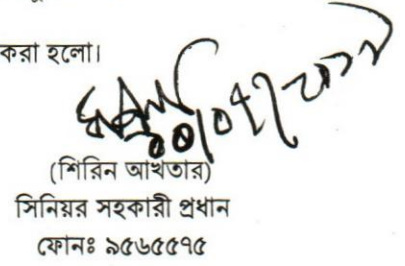 করা হলো।
(শিরিন আখতার)
সিনিয়র সহকারী প্রধান
ফোনঃ ৯৫৬৫৫৭৫